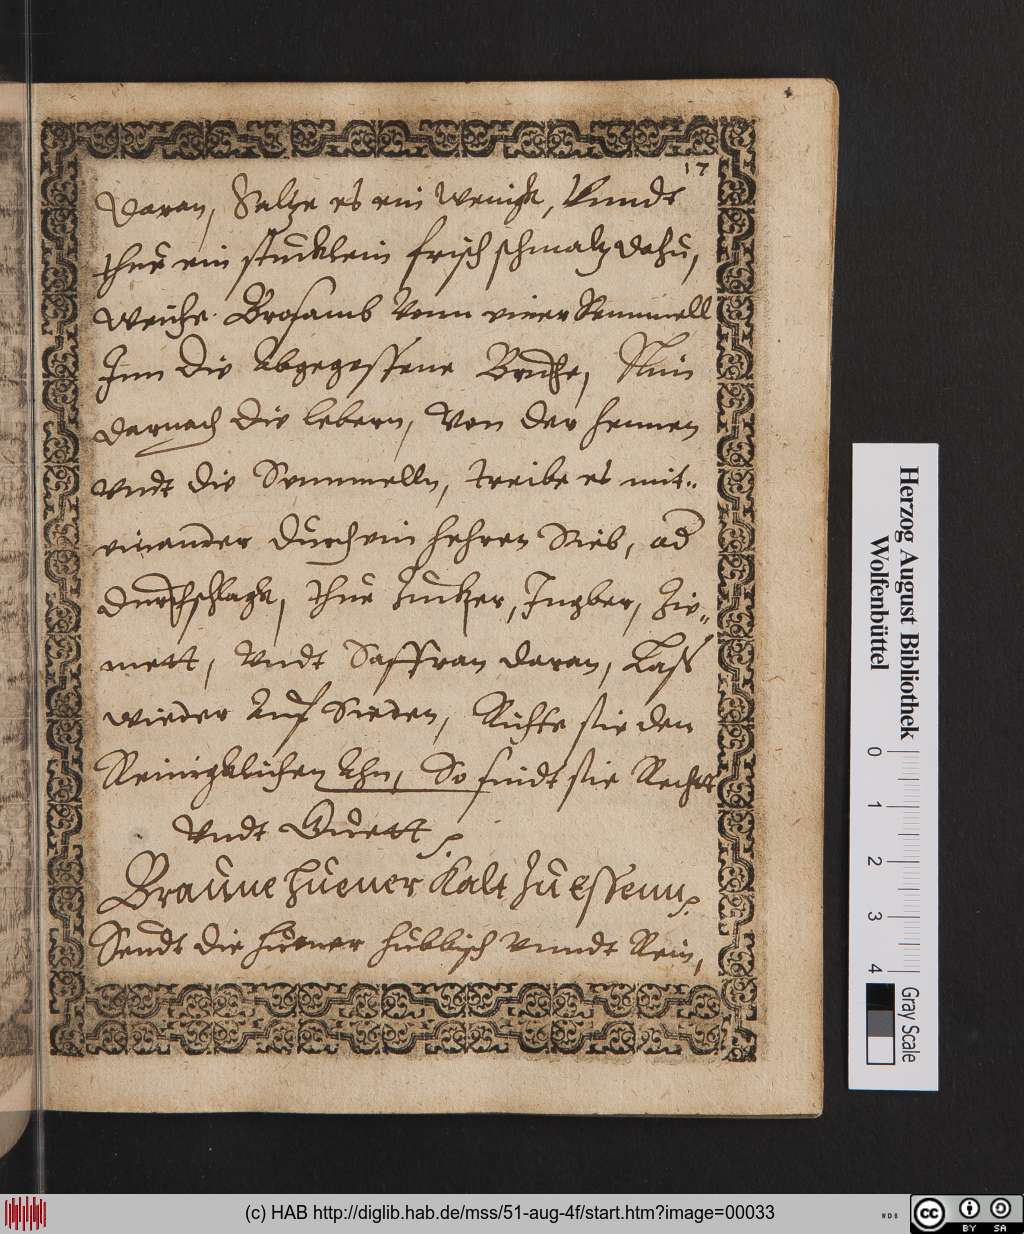 17
daran, Saltze es ein wenigk, vnndt
thue ein stucklein frisch schmaltz dahu,
weiche Brosamb vonn einer Semmell
Inn die abgegossene Bruhe, Nim
darnach die lebern, von der hennen
vndt die Semmelln, treibe es mit„
einander durch ein hehren Sieb, od
durchschlagk, thue Zucker, Ingber, Zie„
mett, vndt Saffran daran, Lass
wieder auf Sieden, Richte sie den
Reinigklichen ahn, So sindt sie Recht
vndt Guett
Braune huener Kalt Zu Essenn
Sendt die huener hubbisch vnndt Rein,
Herzog August Bibliothek
Wolfenbüttel
0 1 2 3 4
Gray Scale
(c) HAB http://diglib.hab.de/mss/51-aug-4f/start.htm?image=00033
WDB
cc BY SA